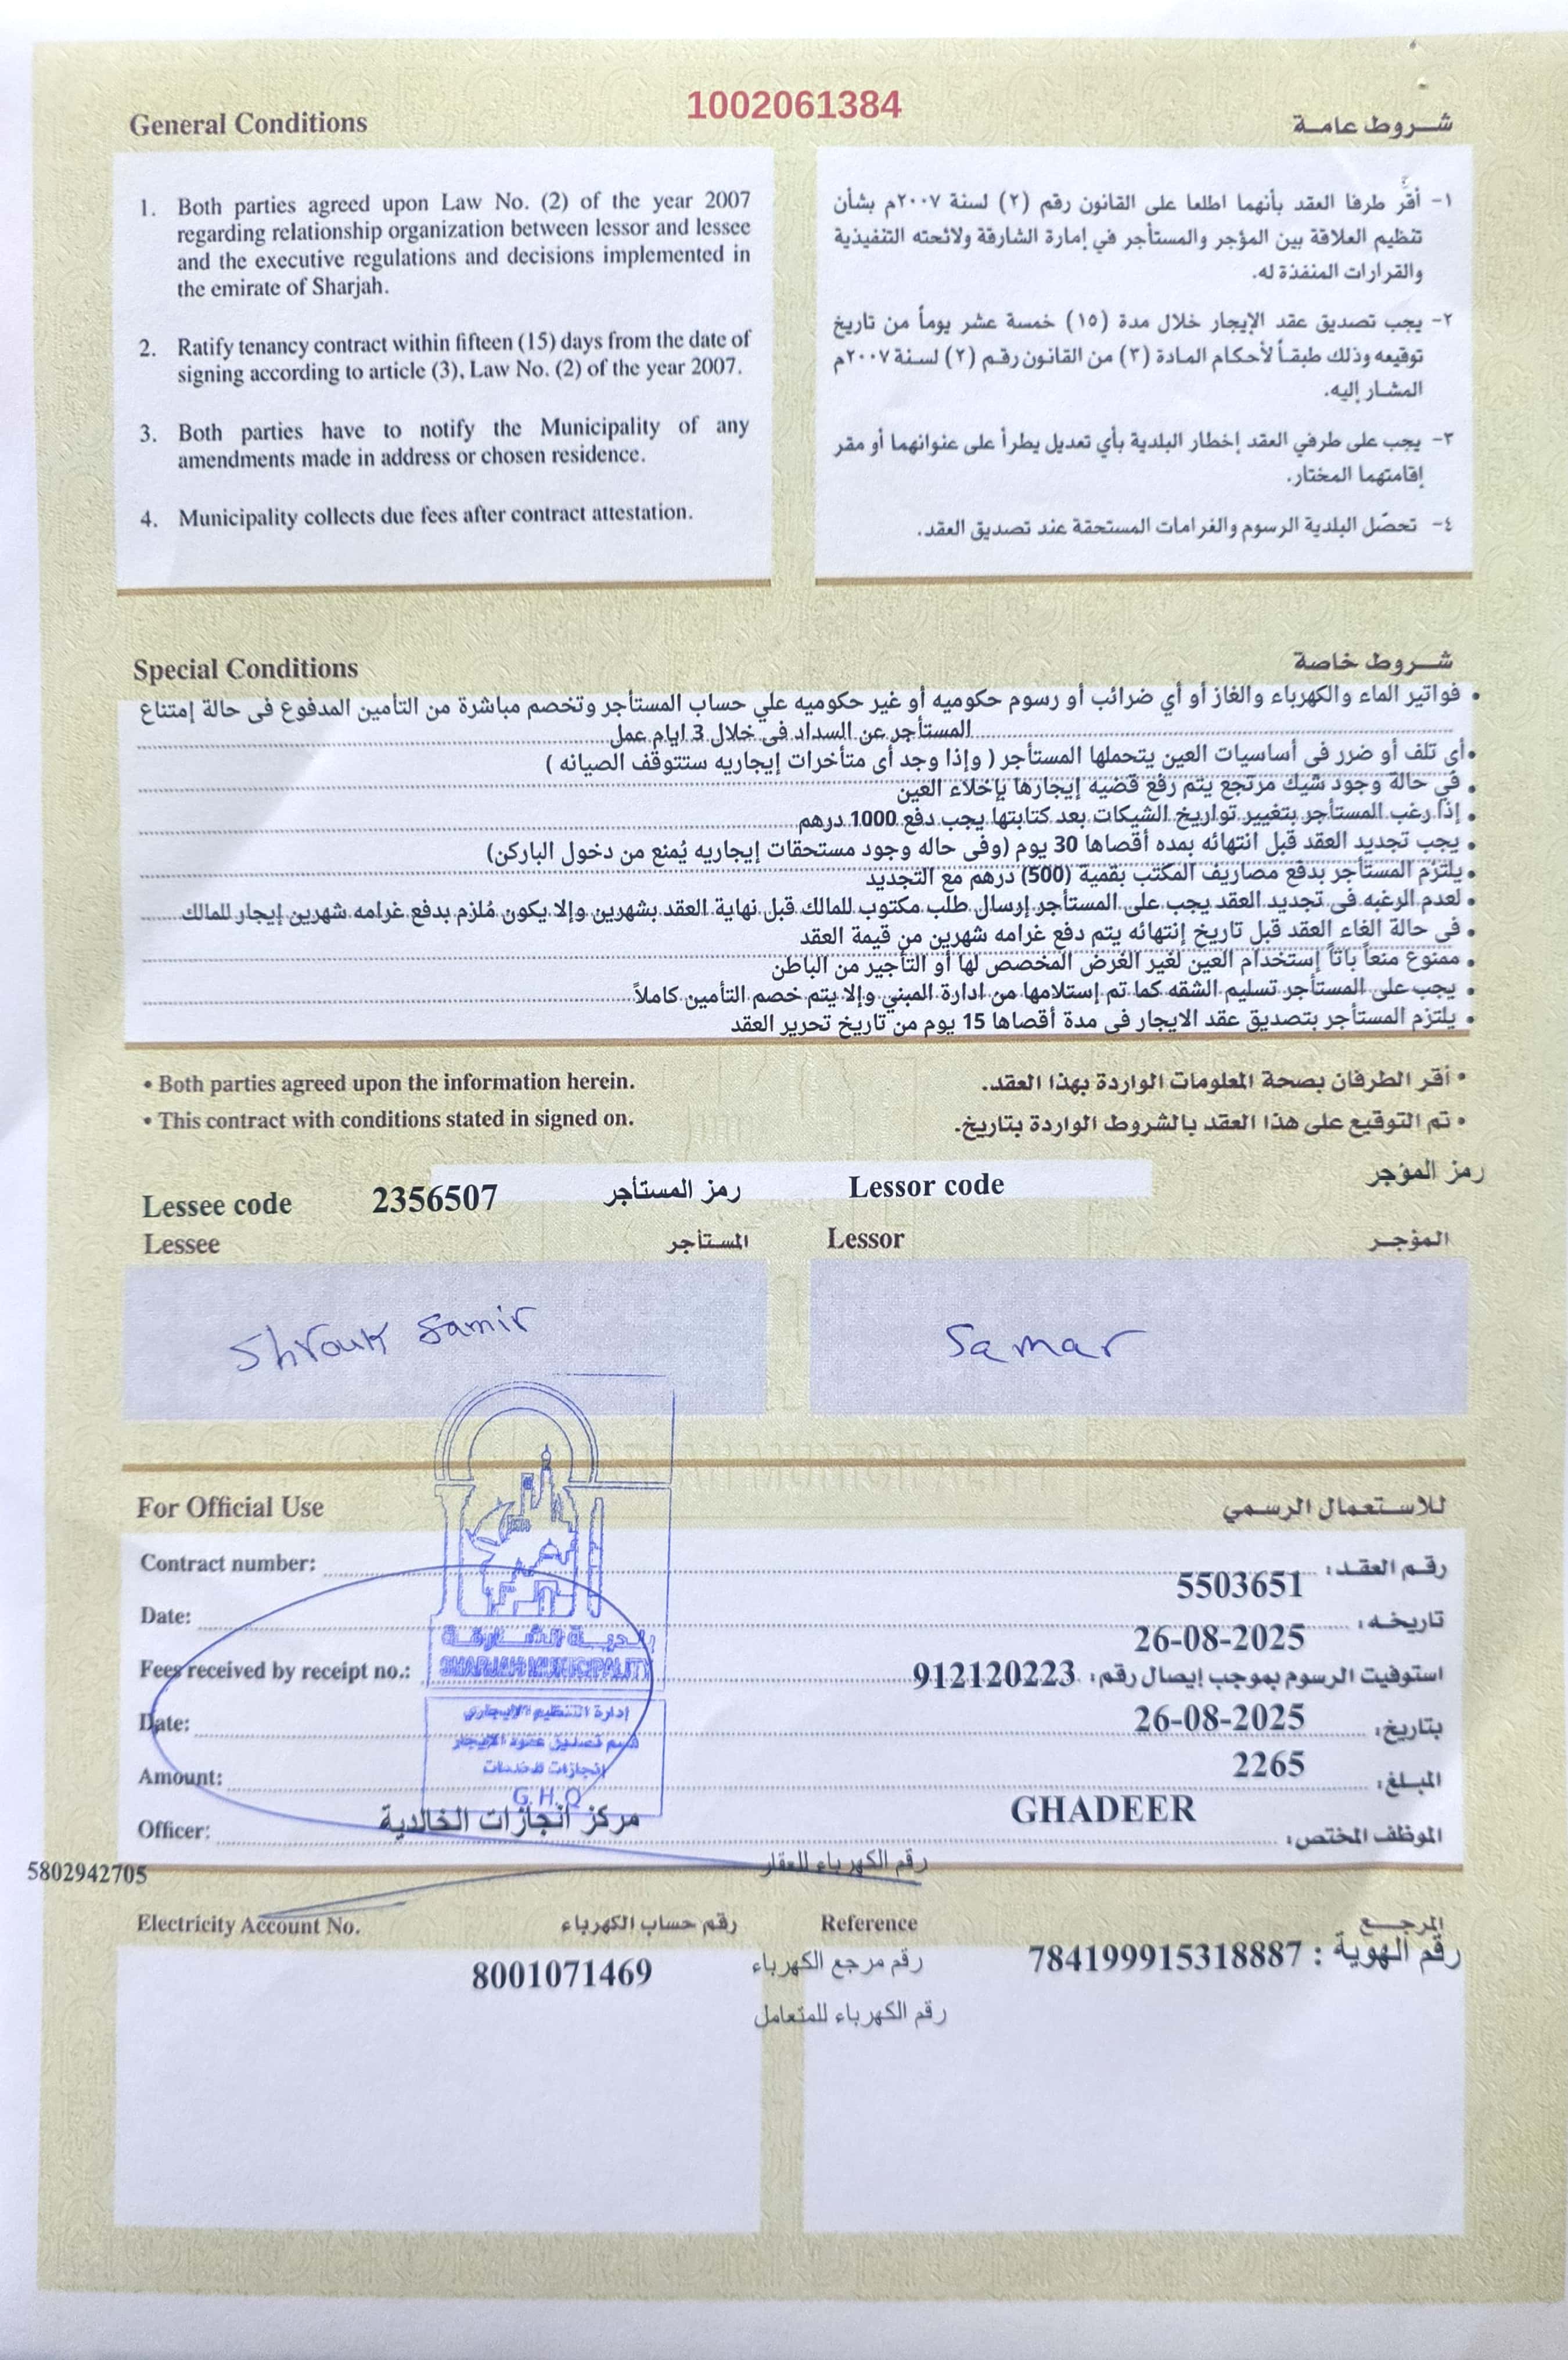 1002061384
General Conditions
شـــروط عامـة
1. Both parties agreed upon Law No. (2) of the year 2007
regarding relationship organization between lessor and lessee
and the executive regulations and decisions implemented in
the emirate of Sharjah.
2. Ratify tenancy contract within fifteen (15) days from the date of
signing according to article (3), Law No. (2) of the year 2007.
3. Both parties have to notify the Municipality of any
amendments made in address or chosen residence.
4. Municipality collects due fees after contract attestation.
١- أقرّ طرفا العقد بأنهما اطلعا على القانون رقم (٢) لسنة ٢٠٠٧م بشأن
تنظيم العلاقة بين المؤجر والمستأجر في إمارة الشارقة ولائحته التنفيذية
والقرارات المنفذة له.
٢- يجب تصديق عقد الإيجار خلال مدة (١٥) خمسة عشر يوماً من تاريخ
توقيعه وذلك طبقاً لأحكام المادة (٣) من القانون رقم (٢) لسنة ٢٠٠٧م
المشار إليه.
٣- يجب على طرفي العقد إخطار البلدية بأي تعديل يطرأ على عنوانهما أو مقر
إقامتهما المختار.
٤- تحصّل البلدية الرسوم والغرامات المستحقة عند تصديق العقد.
Special Conditions
شـــروط خاصة
• فواتير الماء والكهرباء والغاز أو أي ضرائب أو رسوم حكوميه أو غير حكوميه علي حساب المستأجر وتخصم مباشرة من التأمين المدفوع فى حالة إمتناع
المستأجر عن السداد فى خلال 3 ايام عمل
• أى تلف أو ضرر فى أساسيات العين يتحملها المستأجر ( وإذا وجد أى متأخرات إيجاريه ستتوقف الصيانه )
• في حالة وجود شيك مرتجع يتم رفع قضيه إيجارها بإخلاء العين
• إذا رغب المستأجر بتغيير تواريخ الشيكات بعد كتابتها يجب دفع 1000 درهم
• يجب تجديد العقد قبل انتهائه بمده أقصاها 30 يوم (وفى حاله وجود مستحقات إيجاريه يُمنع من دخول الباركن)
• يلتزم المستأجر بدفع مصاريف المكتب بقمية (500) درهم مع التجديد
• لعدم الرغبه فى تجديد العقد يجب على المستأجر إرسال طلب مكتوب للمالك قبل نهاية العقد بشهرين وإلا يكون مُلزم بدفع غرامه شهرين إيجار للمالك
• فى حالة الغاء العقد قبل تاريخ إنتهائه يتم دفع غرامه شهرين من قيمة العقد
• ممنوع منعاً باتاً إستخدام العين لغير الغرض المخصص لها أو التأجير من الباطن
• يجب على المستأجر تسليم الشقه كما تم إستلامها من ادارة المبني وإلا يتم خصم التأمين كاملاً
• يلتزم المستأجر بتصديق عقد الايجار فى مدة أقصاها 15 يوم من تاريخ تحرير العقد
• Both parties agreed upon the information herein.
• أقر الطرفان بصحة المعلومات الواردة بهذا العقد.
• This contract with conditions stated in signed on.
• تم التوقيع على هذا العقد بالشروط الواردة بتاريخ.
Lessee code 2356507 رمز المستأجر
Lessor code رمز المؤجر
Lessee المستأجر
Lessor المؤجـر
Shrouk Samir
Samar
For Official Use
للاستعمال الرسمي
Contract number: 5503651 رقـم العقـد:
Date: 26-08-2025 تاريخـه:
Fees received by receipt no.: 912120223 استوفيت الرسوم بموجب إيصال رقم:
Date: 26-08-2025 بتاريخ:
Amount: 2265 المبلغ:
Officer: مركز انجازات الخالدية GHADEER الموظف المختص:
بلدية الشارقة
SHARJAH MUNICIPALITY
إدارة التنظيم الإيجاري
قسم تصديق عقود الإيجار
إنجازات للخدمات
G.H.Q
5802942705
رقم الكهرباء للعقار
Electricity Account No. رقم حساب الكهرباء
Reference المرجـــع
8001071469 رقم مرجع الكهرباء
رقم الهوية : 784199915318887
رقم الكهرباء للمتعامل